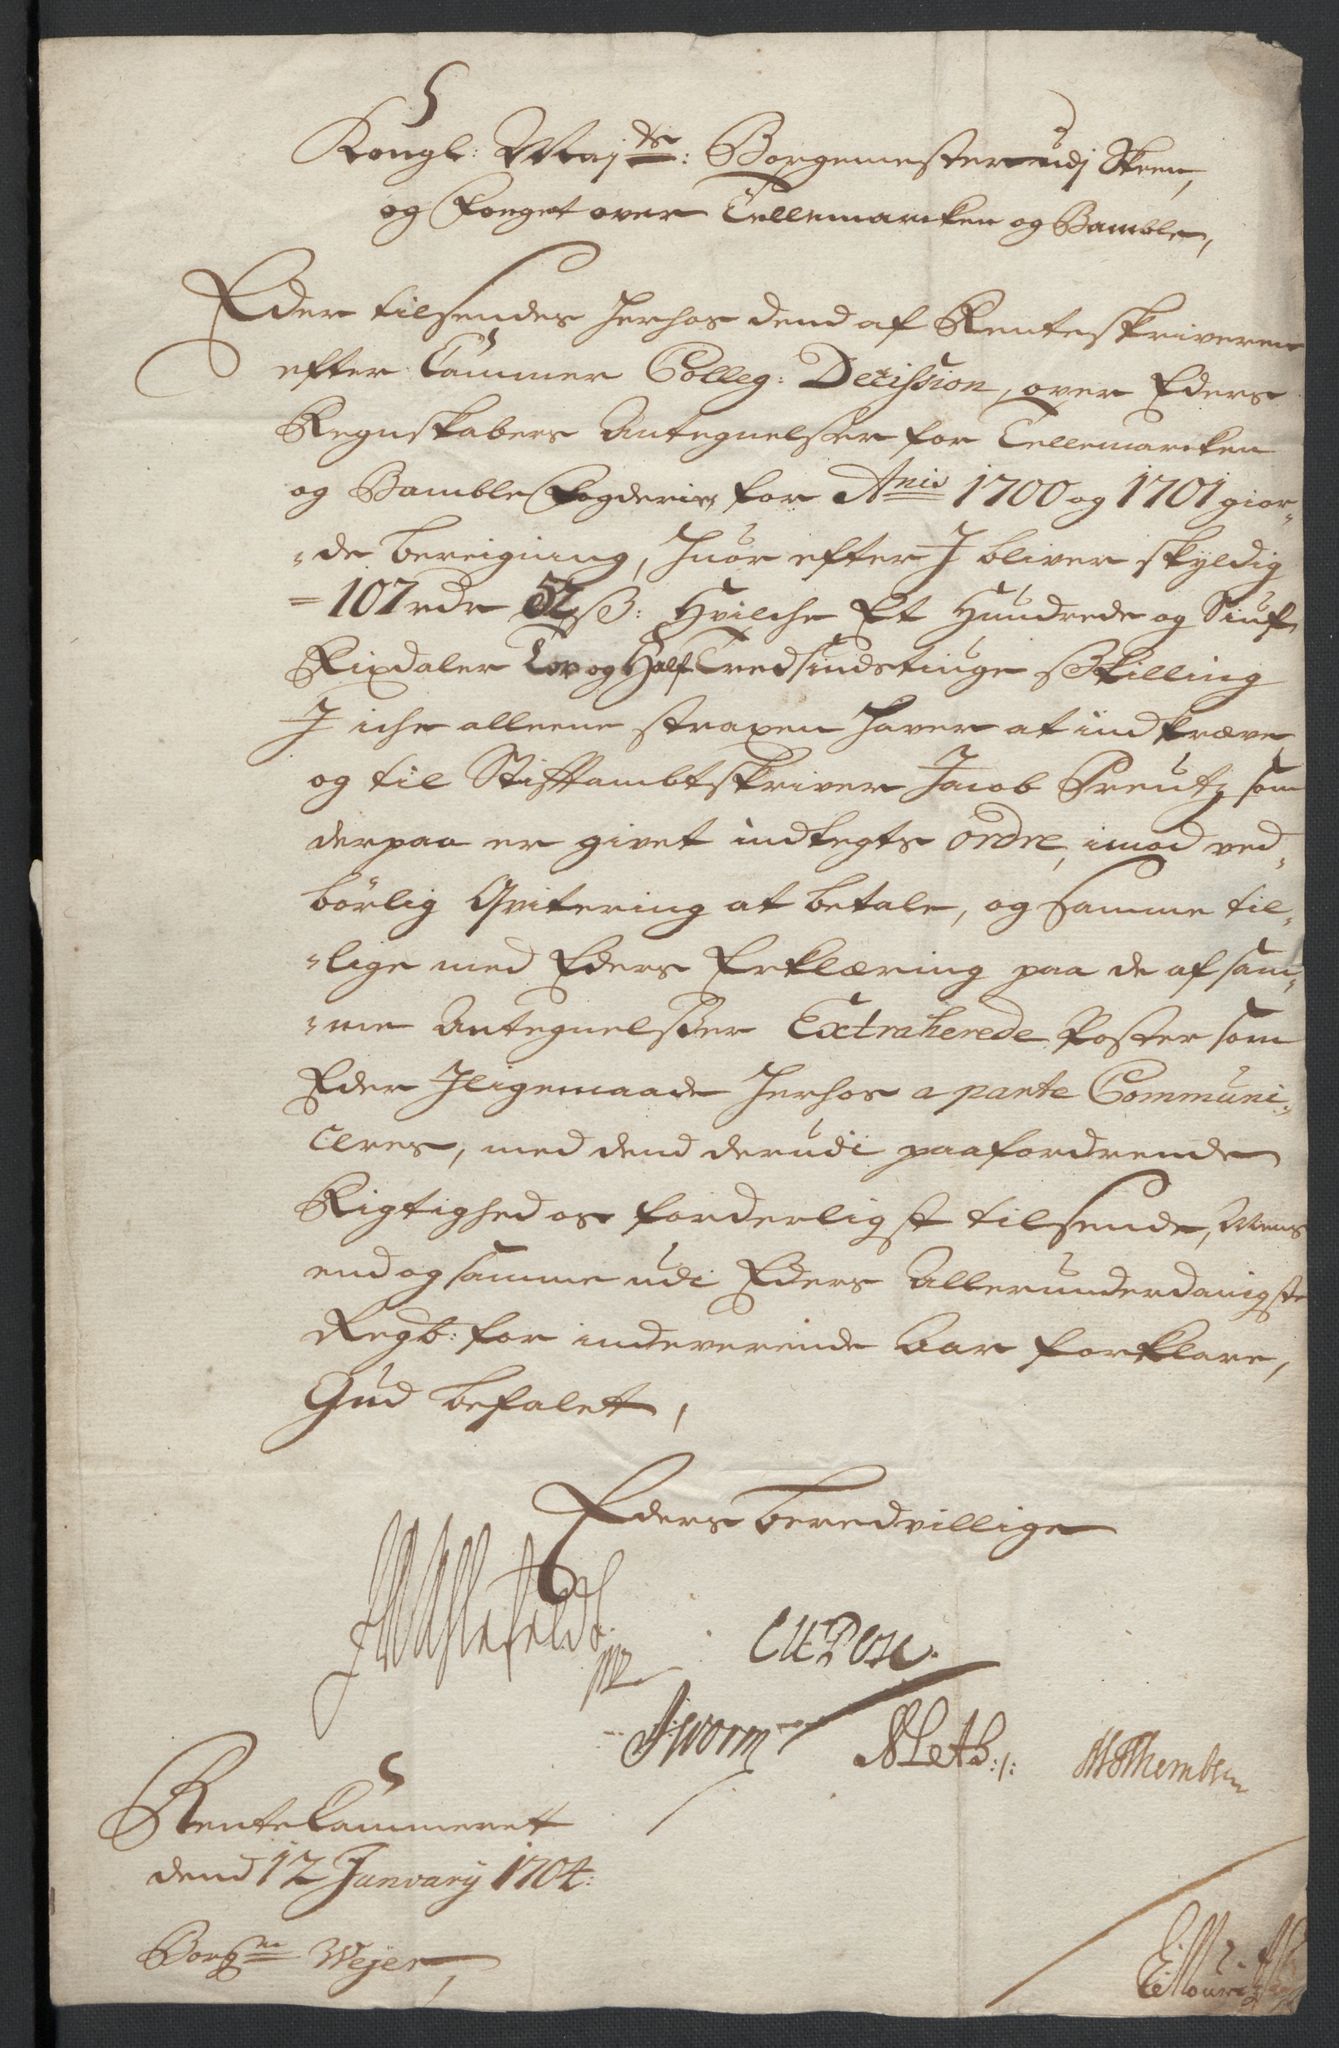 Kongl: Maj^ts: Borgemester udj Skeen,
og Foeget over Tellemarcken og Bamble,
Eder tilsendes herhos dend af Renteskriveren
efter Cammer Colleg: Decission, over Eders
Regnskabers Antegnelsser for Tellemarcken
og Bamble Fogderie, for Anis 1700 og 1701 gior-
-de bereigning, huor efter J bliver skyldig
=107 rdr 52 ß: Hvilche Et Hundrede og Siuf
Rixdaler Tov og Half Tredsindstiuge Skilling
J iche alleene straxen haver at indkræve
og til Stifftambtskriver Jacob Preutz som
derpaa er givet indtegts ordre, imod ved-
børlig Qvitering at betale, og samme til-
-lige med Eders Erklæring paa de af sam-
-me Antegnelsser Extraherede Poster som
Eder Jligemaade herhos a parte Communi-
ceres, med dend derudi paafordrende
Rigtighed os forderligst tilsende, Mens
end og samme udi Eders Allerunderdanigste
Regb: for indeverende Aar forklare,
Gud befalet,
Eders beredvillige
Ahlefeldt
JWorm
Rentekammeret
dend 12 January 1704:
Borgm Wejer,